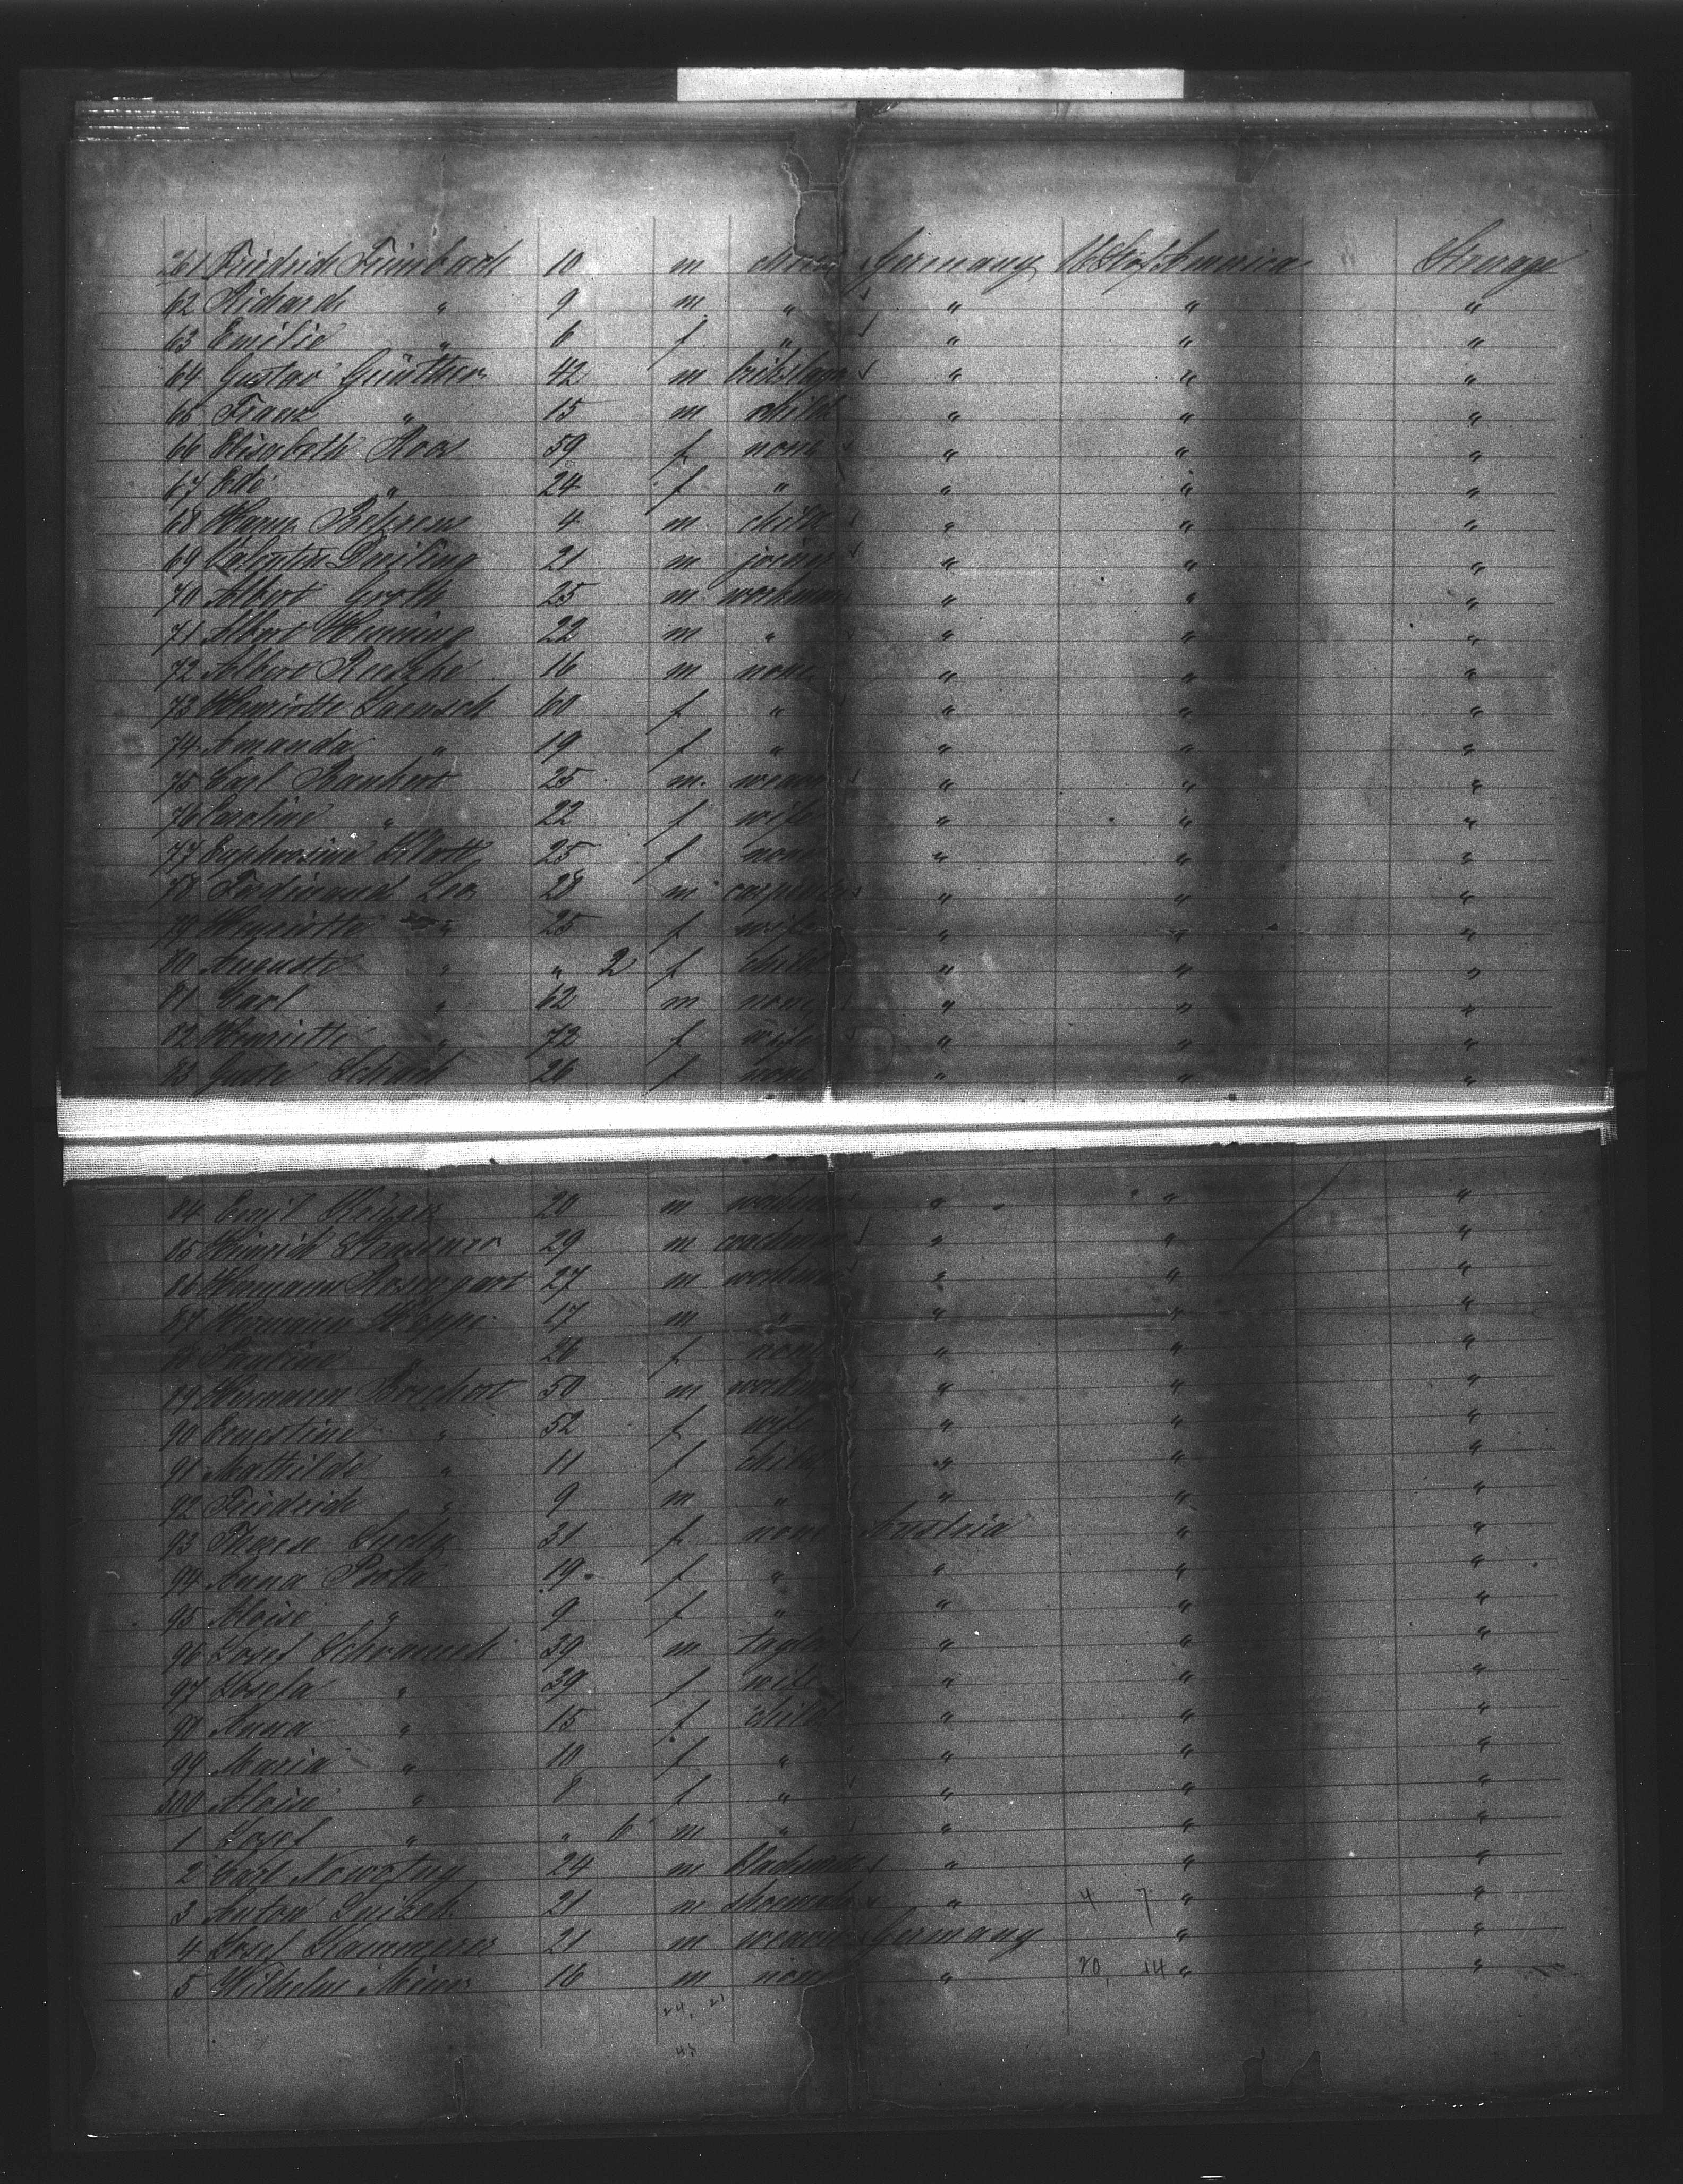 261 Friedrich Fimbach 10 m child Germany U St of America Steerage
62 Richard " 9 m " " " "
63 Emilie " 6 f " " " "
64 Gustav Günther 42 m " " "
65 Franz " 15 m child " " "
66 Elisabeth Roos 59 f none " " "
67 Ede " 24 f " " " "
68 Hans Behrens 4 m child " " "
69 Valentin Deiling 21 m joiner " " "
70 Albert Groth 25 m workman " " "
71 Albert Henning 22 m " " " "
72 Albert 16 m none " " "
73 Henriette Laensch 60 f " " " "
74 Amanda " 19 f " " " "
75 Carl Raubert 25 m weaver " " "
76 Caroline " 22 f wife " " "
77 Euphrosine Klotz 25 f none " " "
78 Ferdinand Leo 28 m " " "
79 Henriette " 25 f wife " " "
80 Auguste " " 2 f child " " "
81 Carl " 62 m none " " "
82 Henriette " 72 f wife " " "
83 Guste Schuch 26 f none " " "
84 Emil Krüger 20 m workman " " "
85 Heinrich Strassner 29 m coachman " " "
86 Hermann Rosengart 27 m workman " " "
87 Hermann Hoppe 17 m " " " "
88 Pauline " 26 f none " " "
89 Hermann Borchert 50 m workman " " "
90 Ernestine " 52 f wife " " "
91 Mathilde " 11 f child " " "
92 Friedrich " 9 m " " " "
93 Therese 31 f none Austria " "
94 Anna 19 f " " " "
95 Aloise " 9 f " " " "
96 Josef Schramek 39 m taylor " " "
97 Josefa " 39 f wife " " "
98 Anna " 15 f child " " "
99 Maria " 10 f " " " "
300 Aloise " 8 f " " " "
1 Josef " " 6 m " " " "
2 Carl Nowotny 24 m " " "
3 Anton 21 m shoemaker " 4 7 " "
4 Josef Kammerer 21 m weaver Germany " "
5 Wilhelm 16 m none " 20, 14 " "
24, 21
45